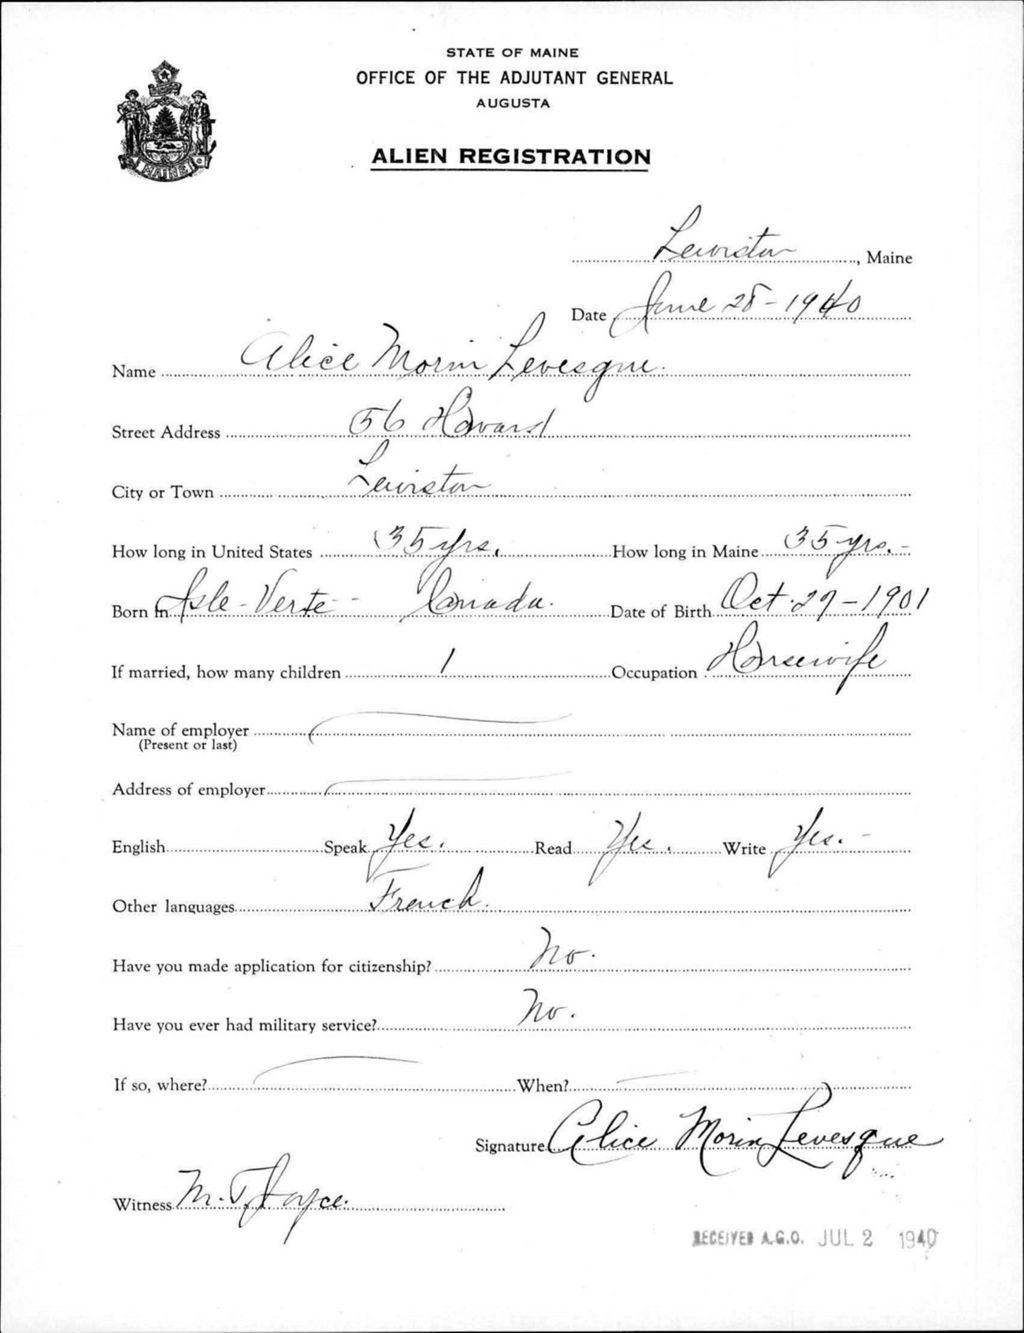 STATE OF MAINE
OFFICE OF THE ADJUTANT GENERAL
AUGUSTA
ALIEN REGISTRATION
MAINE
Lewiston, Maine
Date June 28-1940
Name Alice Morin Levesque.
Street Address 56 Howard
City or Town Lewiston
How long in United States 35 yrs. How long in Maine 35 yrs. -
Born in Isle-Verte - Canada. Date of Birth Oct. 27-1901
If married, how many children 1 Occupation Housewife
Name of employer
(Present or last)
Address of employer
English Speak Yes. Read Yes. Write Yes. -
Other languages French.
Have you made application for citizenship? No.
Have you ever had military service? No.
If so, where? When?
Signature Alice Morin Levesque
Witness M. T. Joyce.
RECEIVED A.G.O. JUL 2 1940